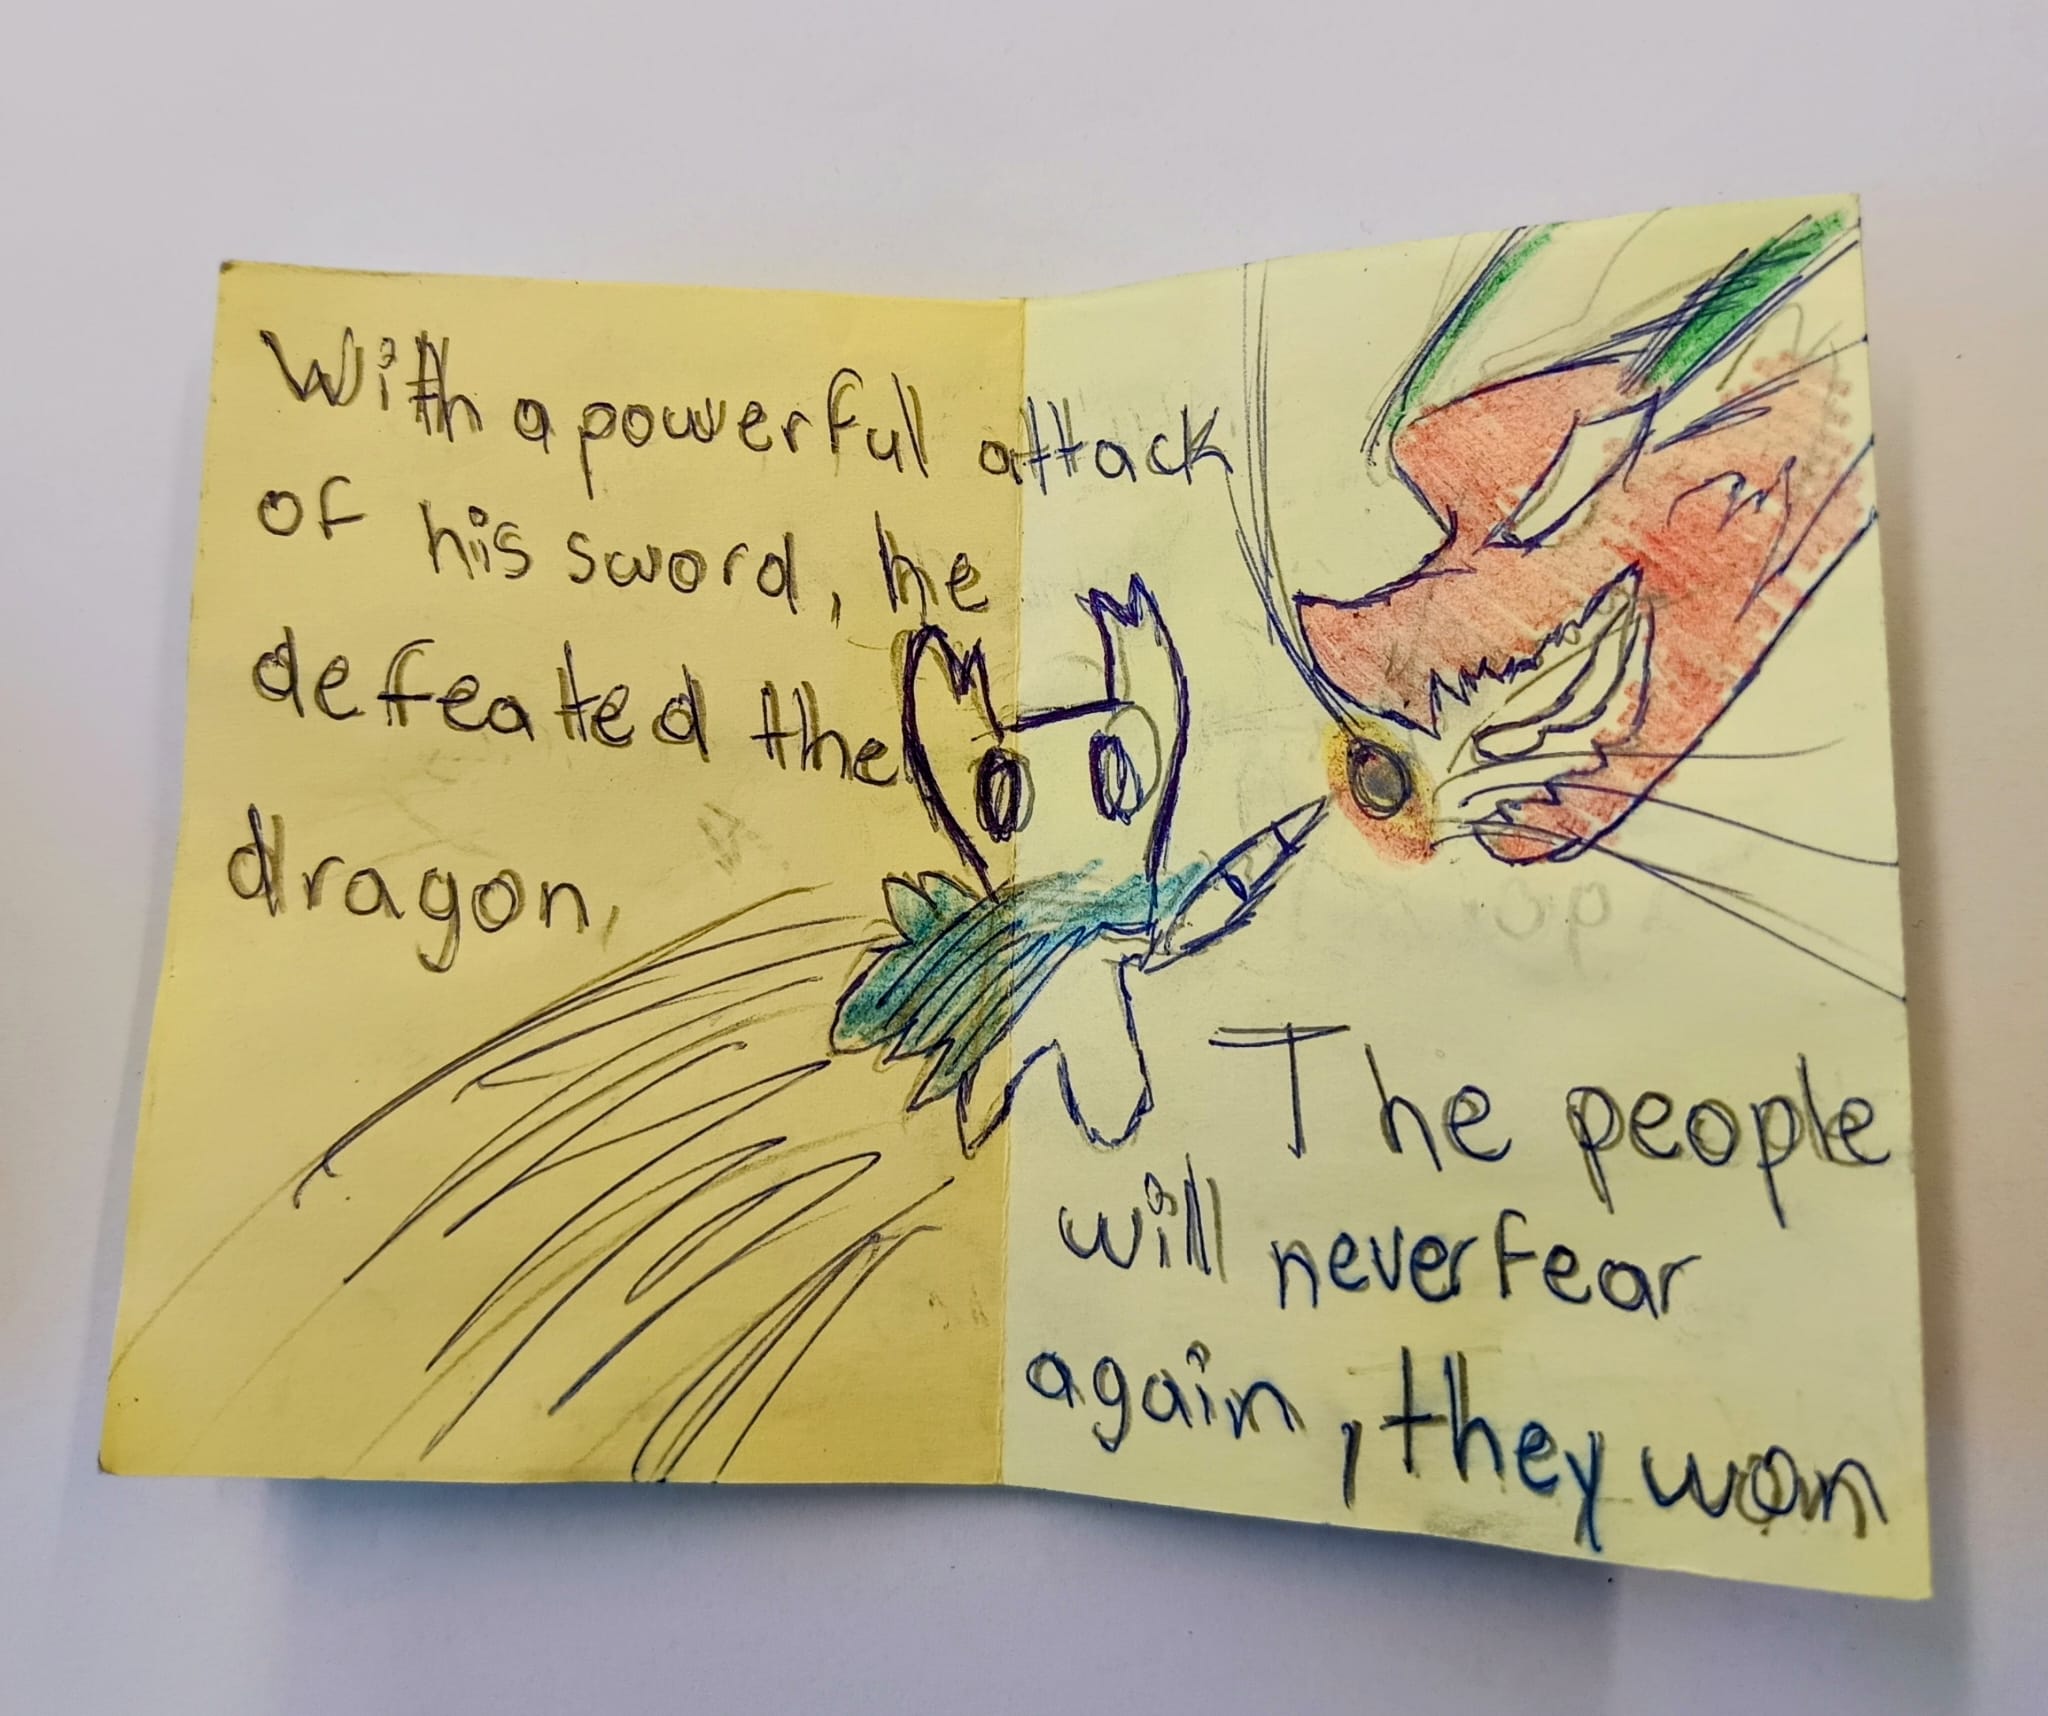 With a powerful attack
of his sword, he
defeated the
dragon,
The people
will never fear
again, they won